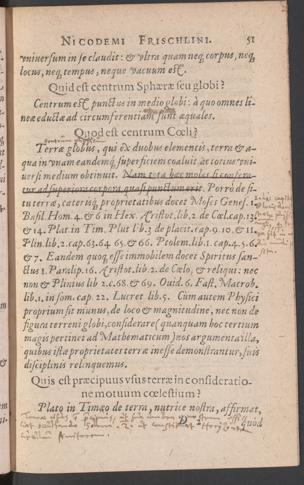 NICODEMI FRISCHLINI. 51
vniuersum in se claudit: & vltra quam neq; corpus, neq;
locus, neq; tempus, neque vacuum est.
Quid est centrum Sphæræ seu globi?
Centrum est punctus in medio globi: à quo omnes li-
neæ eductæ ad circumferentiam sunt æquales.
Quod est centrum Cœli?
Terræ globus, qui ex duobus elementis, terra & a-
qua in vnam eandemq; superficiem coaluit ac totius vni-
uersi medium obtinuit. Nam tota hæc moles si confera-
tur ad superiora corpora quasi punctum erit. Porrò de si-
tu terræ, cæterisq; proprietatibus docet Moses Genes. 1
Basil. Hom. 4. & 6 in Hex. Aristot. lib. 2. de Cœl. cap. 13.
& 14. Plat in Tim. Plut l'b. 3 de placit. cap. 9. 10. & 11.
Plin. lib. 2. cap. 63. 64 65. & 66. Ptolem. lib. 1. cap. 4. 5. 6
& 7. Eandem quoq; esse immobilem docet Spiritus san-
ctus 1. Paralip. 16. Aristot. lib. 2. de Cœlo, & reliqui: nec
non & Plinius lib 2. c. 68. & 69. Ouid. 6. Fast. Macrob.
lib. 1. in som. cap. 22. Lucret lib. 5. Cùm autem Physici
proprium sit munus, de loco & magnitudine, nec non de
figura terreni globi, considerare (quanquam hoc tertium
magis pertinet ad Mathematicum) nos argumenta illa,
quibus istæ proprietates terræ inesse demonstrantur, suis
disciplinis relinquemus.
Quis est præcipuus vsus terræ in consideratio-
ne motuum cœlestium?
Plato in Timæo de terra, nutrice nostra, affirmat,
quòd